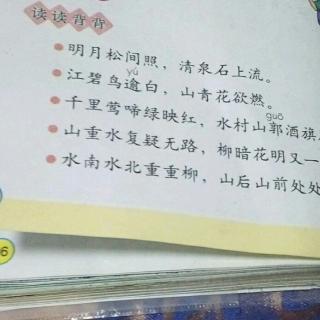 读读背背
明月松间照，清泉石上流。
yú
江碧鸟逾白，山青花欲燃。
guō
千里莺啼绿映红，水村山郭酒旗
山重水复疑无路，柳暗花明又一
水南水北重重柳，山后山前处处
6